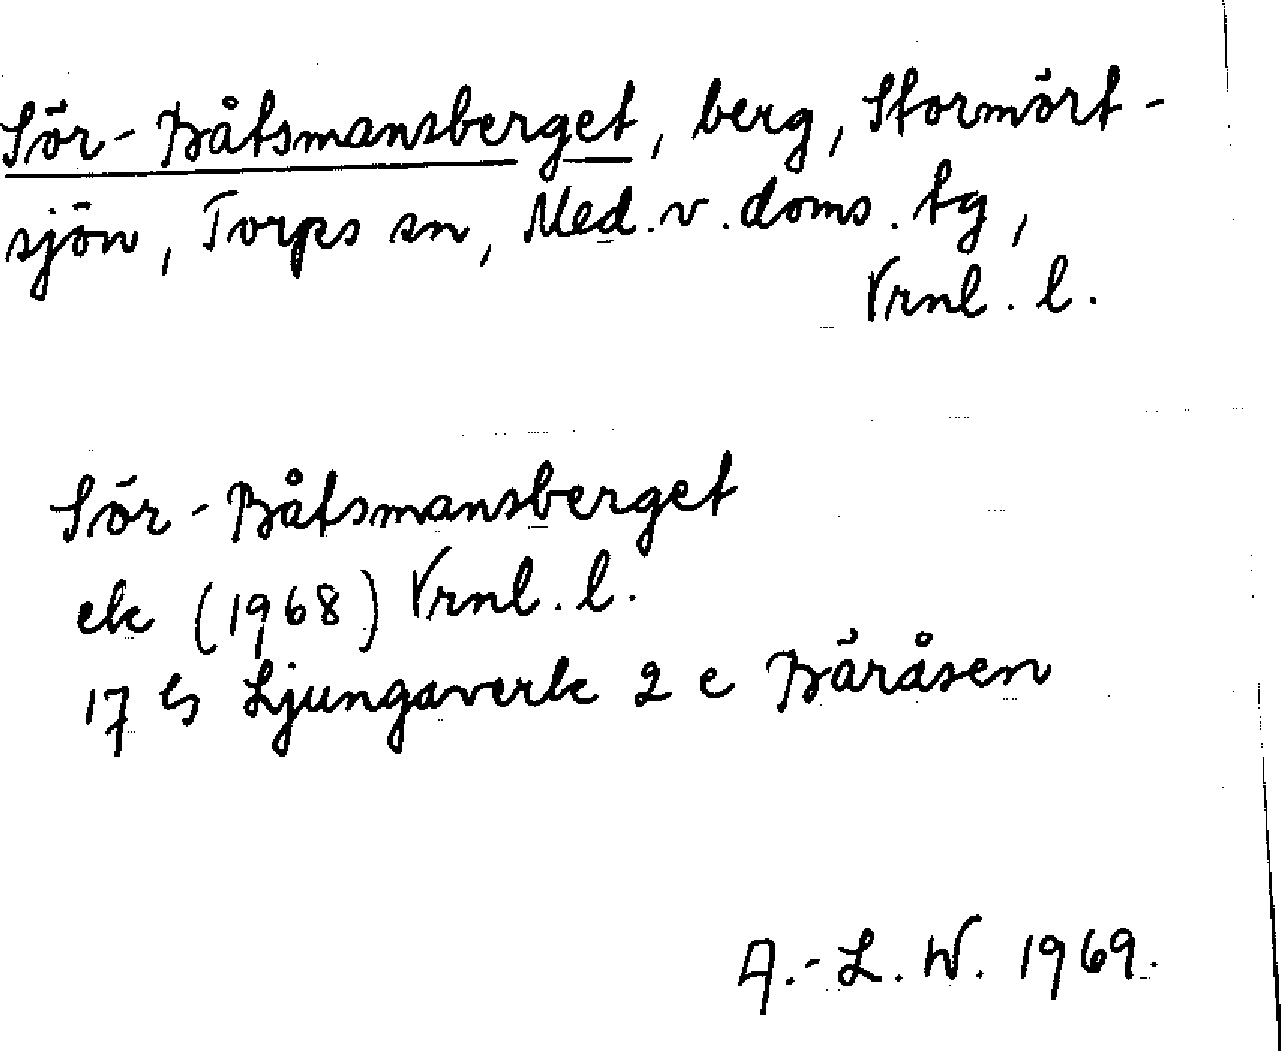 Sör-Båtsmansberget, berg, Stormört-
sjön, Torps sn, Med. v. doms. tg,
Vrnl. l.
Sör-Båtsmansberget
ek (1968) Vrnl. l.
17 G Ljungaverk 2 c Bäråsen
A.-L. W. 1969.